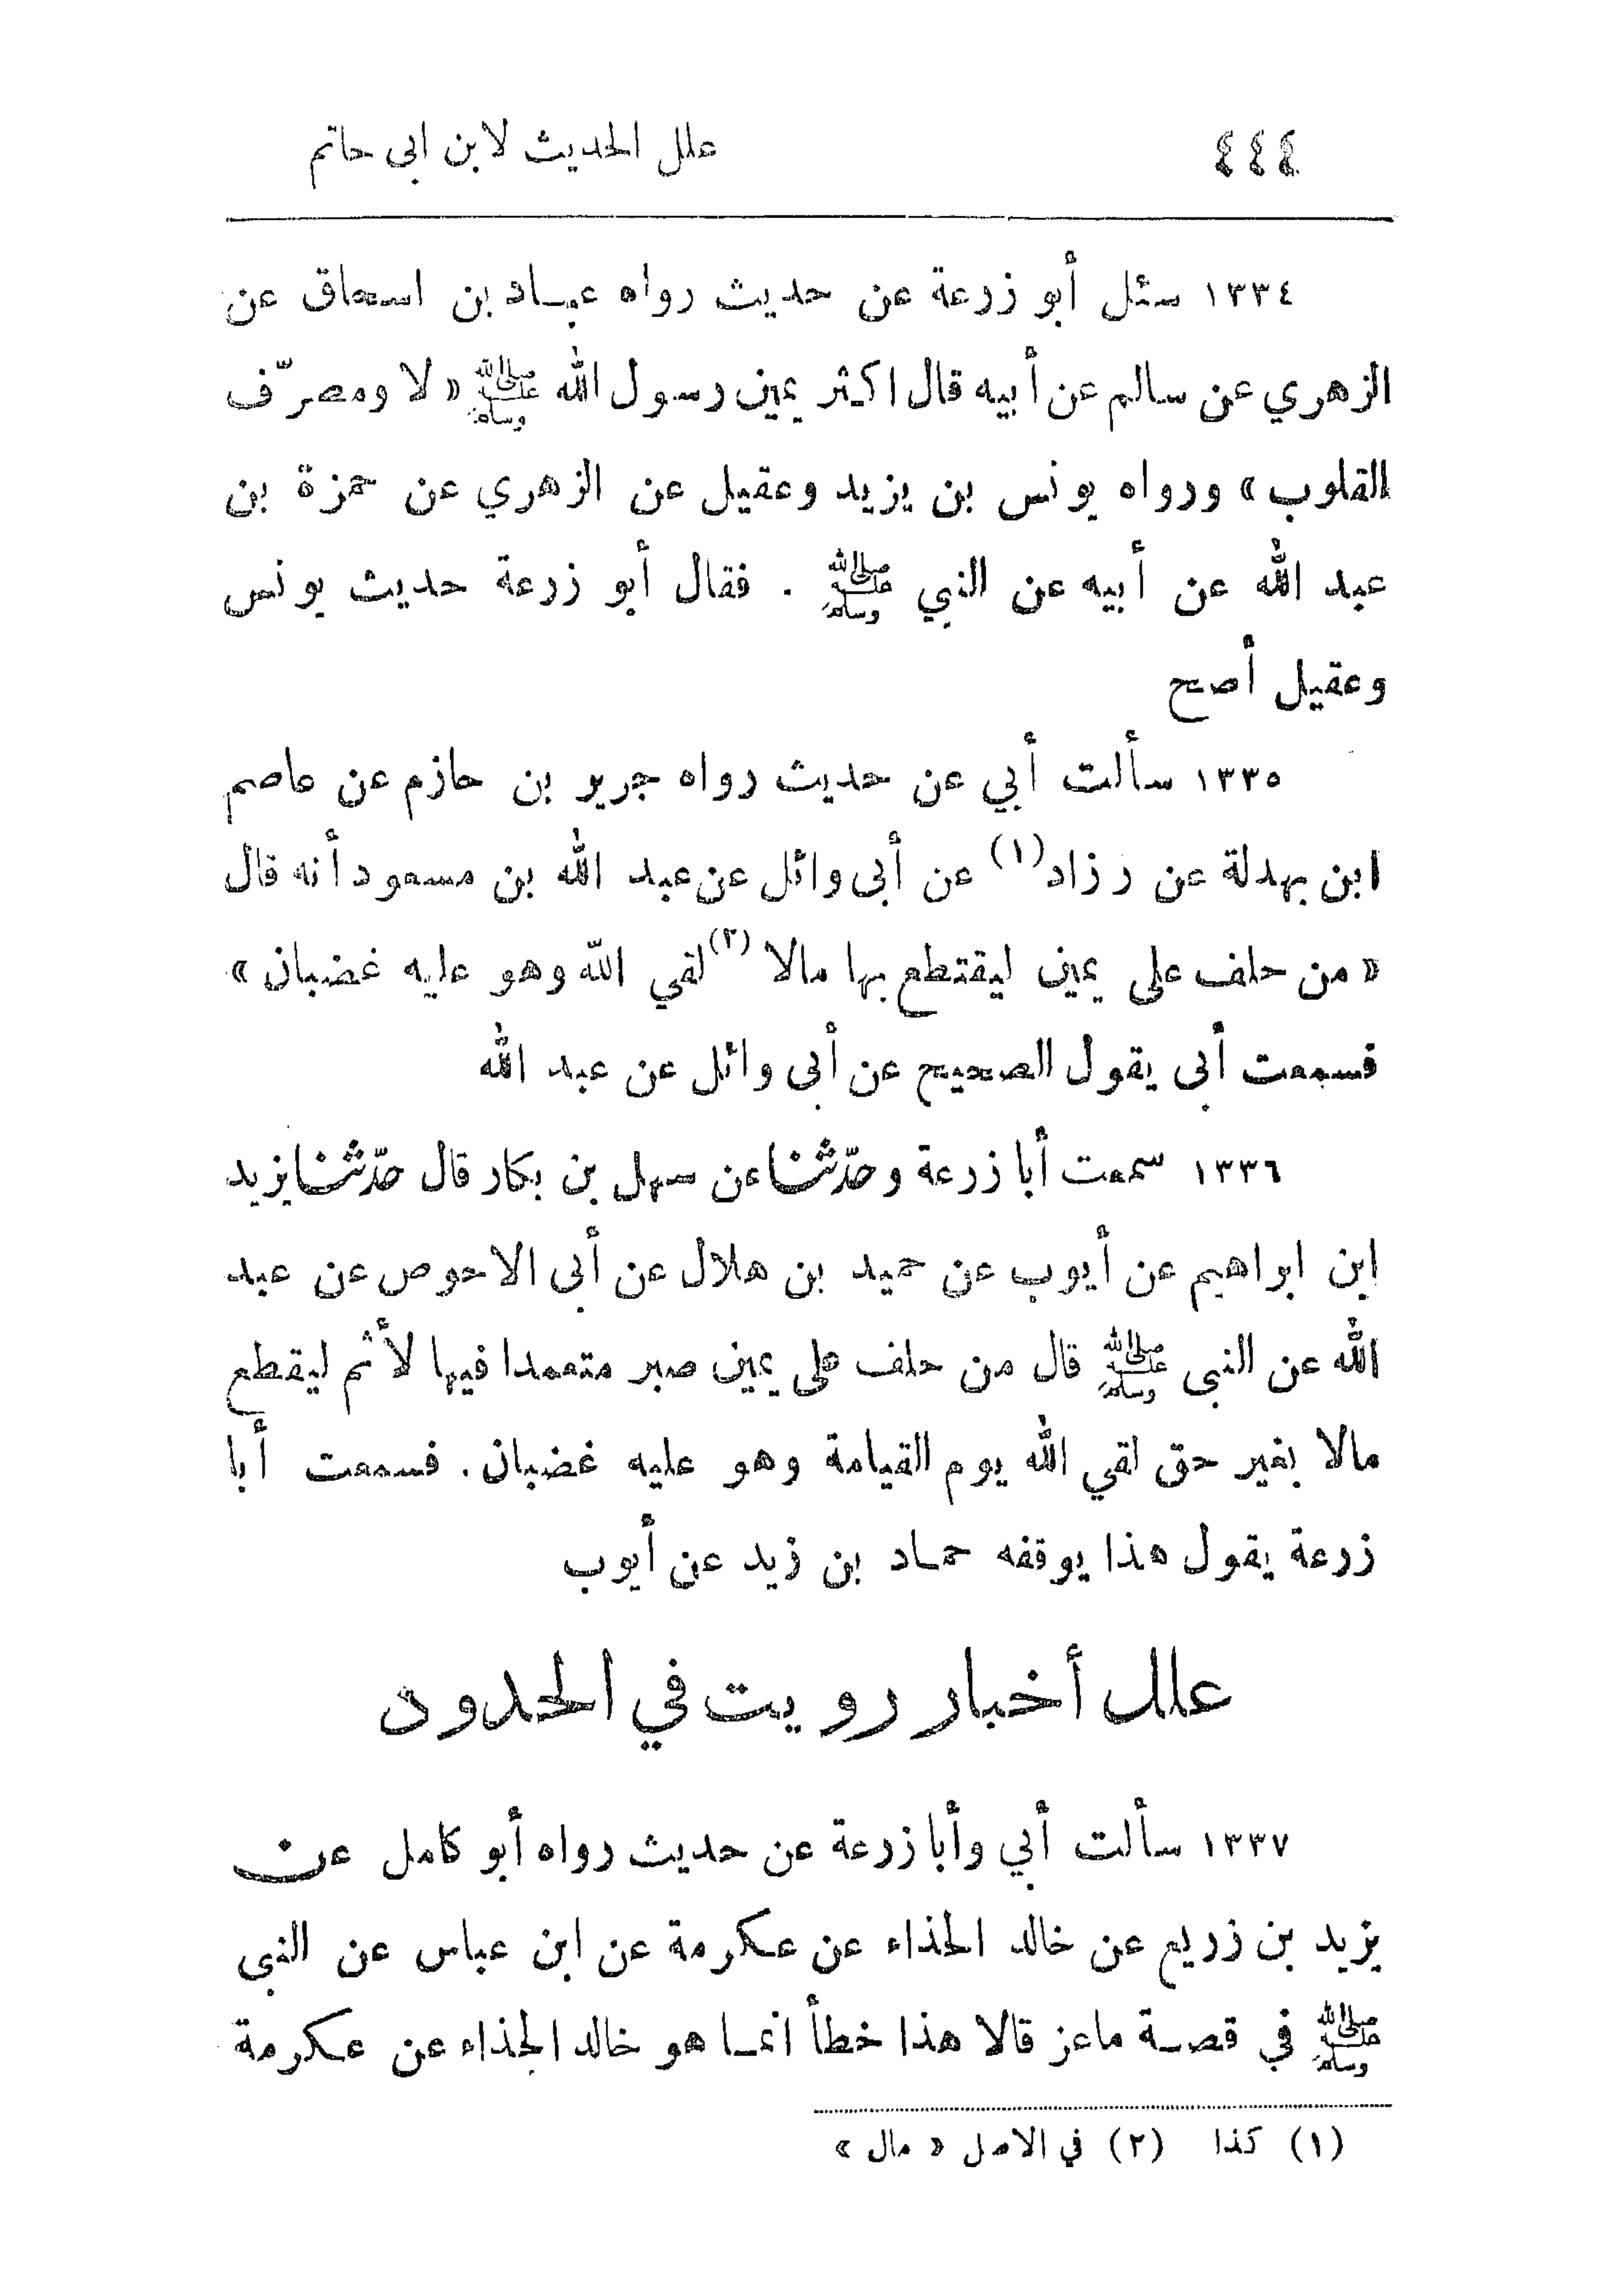 ٤٤٤ علل الحديث لابن ابى حاتم
١٣٣٤ سئل أبو زرعة عن حديث رواه عباد بن اسحاق عن
الزهري عن سالم عن أبيه قال اكثر يمين رسول الله ﷺ « لا ومصرّف
القلوب » ورواه يونس بن يزيد وعقيل عن الزهري عن حمزة بن
عبد الله عن أبيه عن النبي ﷺ . فقال أبو زرعة حديث يونس
وعقيل أصح
١٣٣٥ سألت أبي عن حديث رواه جرير بن حازم عن عاصم
ابن بهدلة عن رزاد (١) عن أبى وائل عن عبد الله بن مسعود أنه قال
« من حلف على يمين ليقتطع بها مالا (٢) لقي الله وهو عليه غضبان »
فسمعت أبى يقول الصحيح عن أبى وائل عن عبد الله
١٣٣٦ سمعت أبا زرعة وحدّثنا عن سهل بن بكار قال حدّثنا يزيد
ابن ابراهيم عن أيوب عن حميد بن هلال عن أبى الاحوص عن عبد
الله عن النبى ﷺ قال من حلف على يمين صبر متعمدا فيها لأثم ليقطع
مالا بغير حق لقي الله يوم القيامة وهو عليه غضبان . فسمعت أبا
زرعة يقول هذا يوقفه حماد بن زيد عن أيوب
علل أخبار رويت في الحدود
١٣٣٧ سألت أبي وأبا زرعة عن حديث رواه أبو كامل عن
يزيد بن زريع عن خالد الحذاء عن عكرمة عن ابن عباس عن النبى
ﷺ في قصة ماعز قالا هذا خطأ انما هو خالد الحذاء عن عكرمة
(١) كذا (٢) في الاصل « مال »